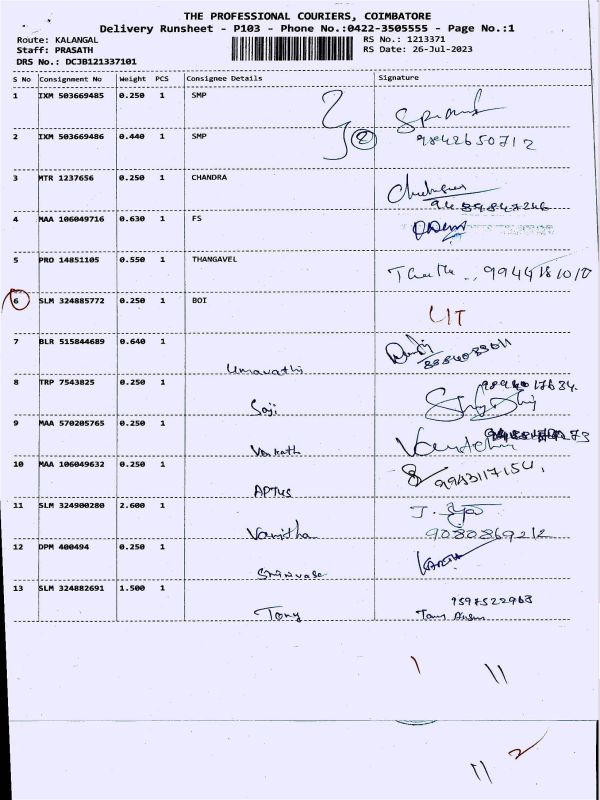 THE PROFESSIONAL COURIERS, COIMBATORE
Delivery Runsheet - P103 - Phone No.:0422-3505555 - Page No.:1
Route: KALANGAL RS No.: 1213371
Staff: PRASATH RS Date: 26-Jul-2023
DRS No.: DCJB121337101
S No Consignment No Weight PCS Consignee Details Signature
1 IXM 503669485 0.250 1 SMP
2 IXM 503669486 0.440 1 SMP 2 9842650712
3 MTR 1237656 0.250 1 CHANDRA
9489847246
4 MAA 106049716 0.630 1 FS
5 PRO 14851105 0.550 1 THANGAVEL
6 SLM 324885772 0.250 1 BOI
7 BLR 515844689 0.640 1 Umavathi
8 TRP 7543825 0.250 1 Saji
9 MAA 570205765 0.250 1 Venkath
10 MAA 106049632 0.250 1 APTUS 9943117154
11 SLM 324900280 2.600 1 Vanitha 9080869212
12 DPM 400494 0.250 1 Srinivase
13 SLM 324882691 1.500 1 Tony 9597522963
1 11
11 2